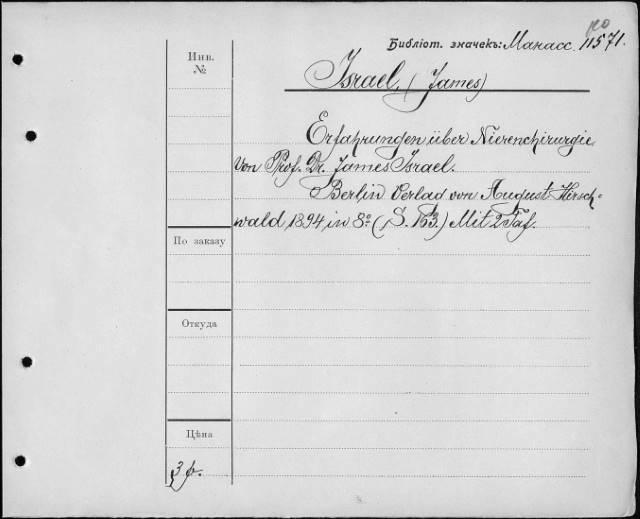 Библіот. значекъ: Манасс. 11571.
Инв.
№
Israel, (James)
Erfahrungen über Nierenchirurgie
von Prof. Dr. James Israel.
Berlin Verlag von August Hirsch-
wald 1894 in 8º (S. 163.) Mit 2 Taf.
По заказу
Откуда
Цѣна
3 р.